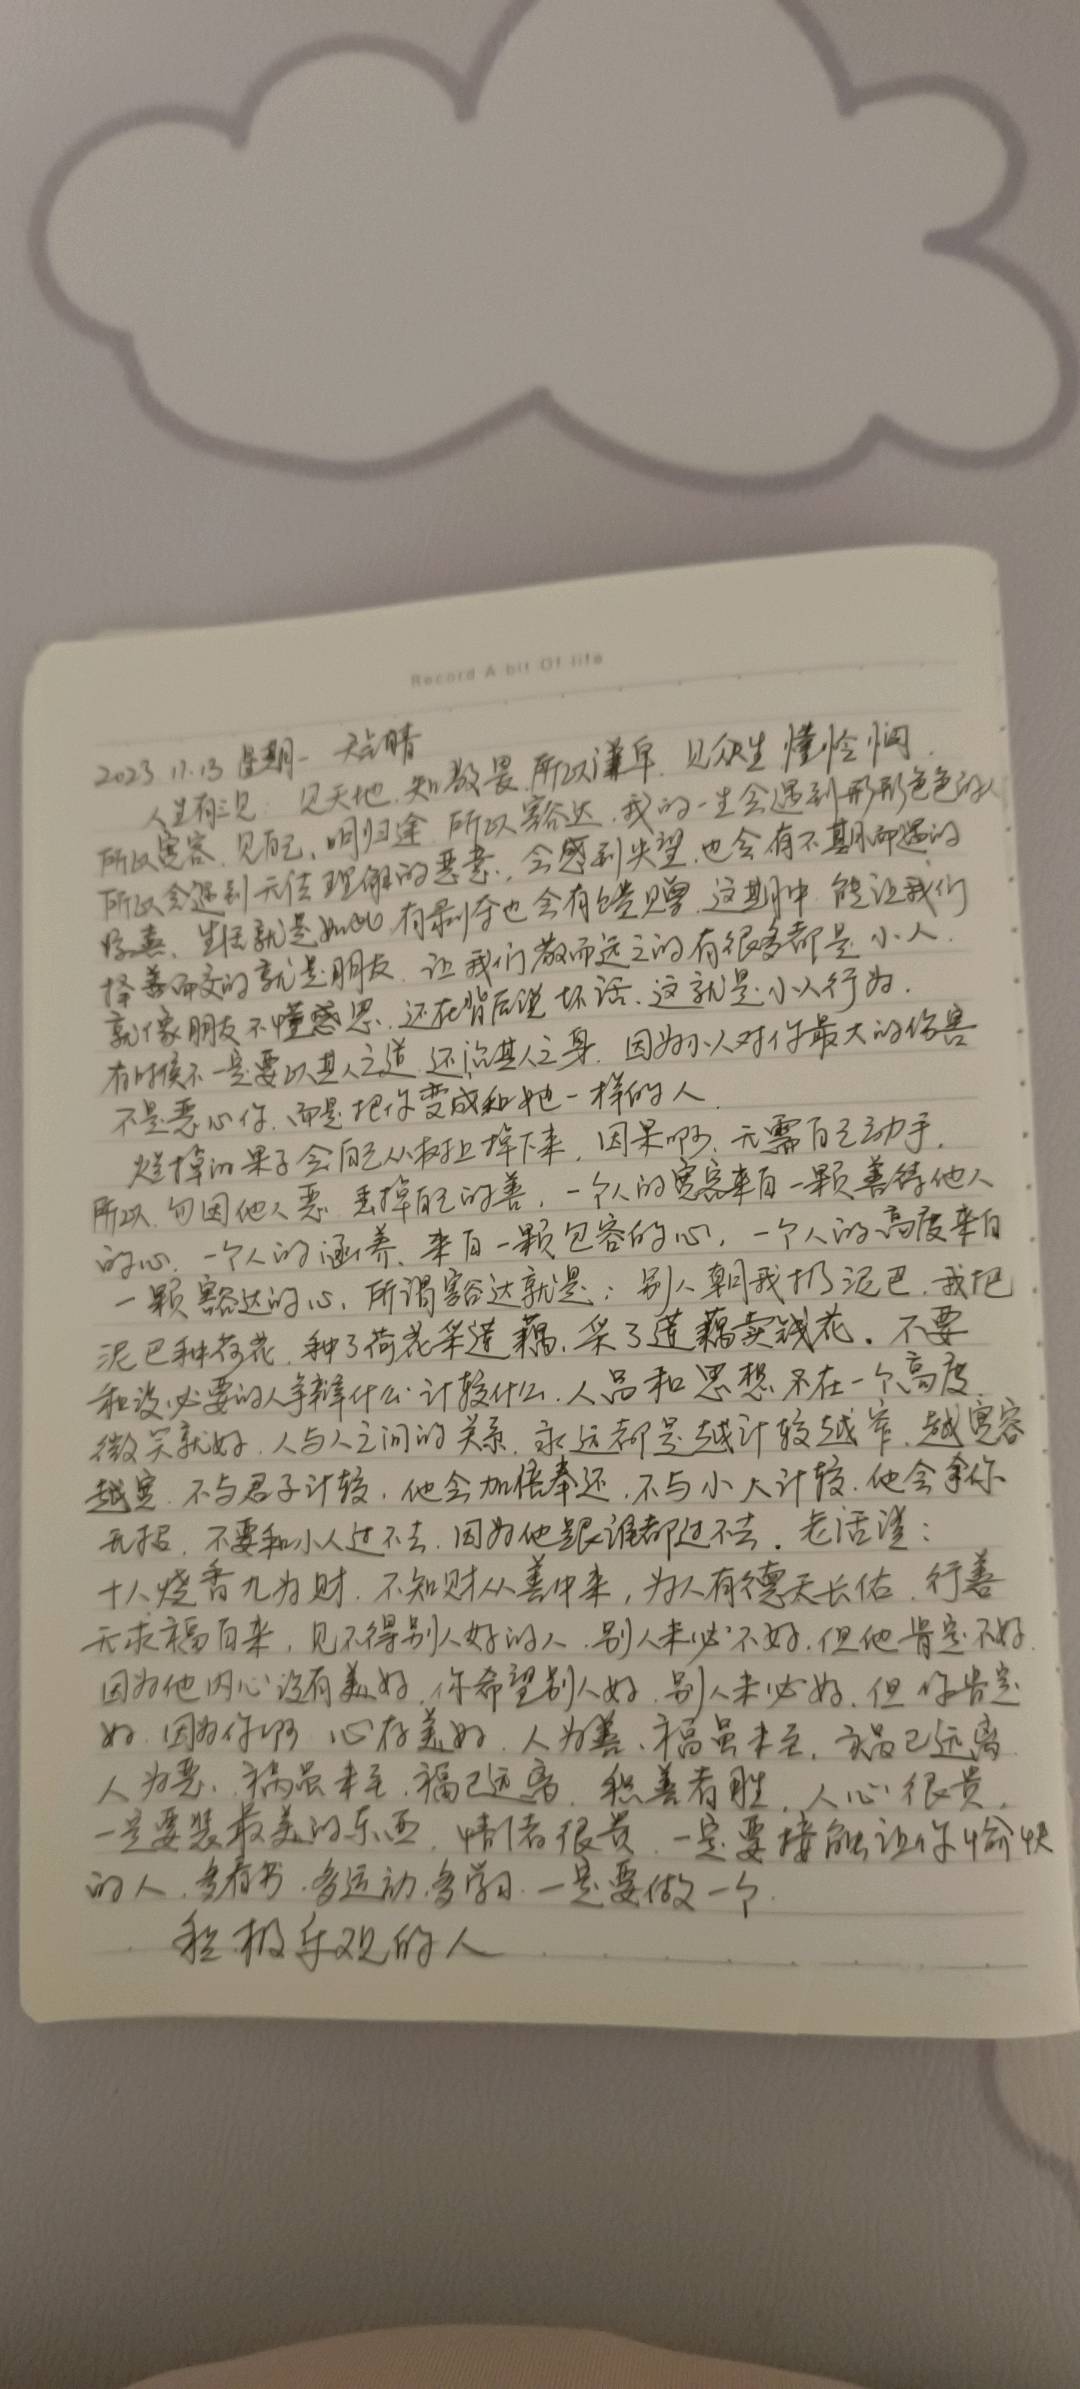 Record A bit Of life
2023 11.13 星期一 天气晴
人生有三见: 见天地、知敬畏、所以谦卑、见众生 懂怜悯、
所以宽容、见自己、明归途、所以豁达、我的一生会遇到形形色色的人
所以会遇到无法理解的恶意、会感到失望、也会有不期而遇的
惊喜、生活就是如此、有剥夺也会有馈赠、这其中、能让我们
择善而交的就是朋友、让我们敬而远之的有很多都是小人、
就像朋友不懂感恩、还在背后说坏话、这就是小人行为、
有时候不一定要以其人之道、还治其人之身、因为小人对你最大的伤害
不是恶心你、而是把你变成和她一样的人、
烂掉的果子会自己从树上掉下来、因果啊、无需自己动手、
所以、勿因他人恶、丢掉自己的善、一个人的宽容来自一颗善待他人
的心、一个人的涵养、来自一颗包容的心、一个人的高度来自
一颗豁达的心、所谓豁达就是: 别人朝我扔泥巴、我把
泥巴种荷花、种了荷花采莲藕、采了莲藕卖钱花。不要
和没必要的人争辩什么、计较什么、人品和思想不在一个高度、
微笑就好、人与人之间的关系、永远都是越计较越窄、越宽容
越宽、不与君子计较、他会加倍奉还、不与小人计较、他会拿你
无招、不要和小人过不去、因为他跟谁都过不去。老话说:
十人烧香九为财、不知财从善中来、为人有德天长佑、行善
无求福自来、见不得别人好的人、别人未必不好、但他肯定不好、
因为他内心没有美好、你希望别人好、别人未必好、但你肯定
好、因为你啊 心存美好、人为善、福虽未至、祸已远离
人为恶、祸虽未至、福已远离、积善者胜、人心很贵、
一定要装最美的东西、情绪很贵、一定要接触让你愉快
的人、多看书、多运动、多学习、一定要做一个
积极乐观的人